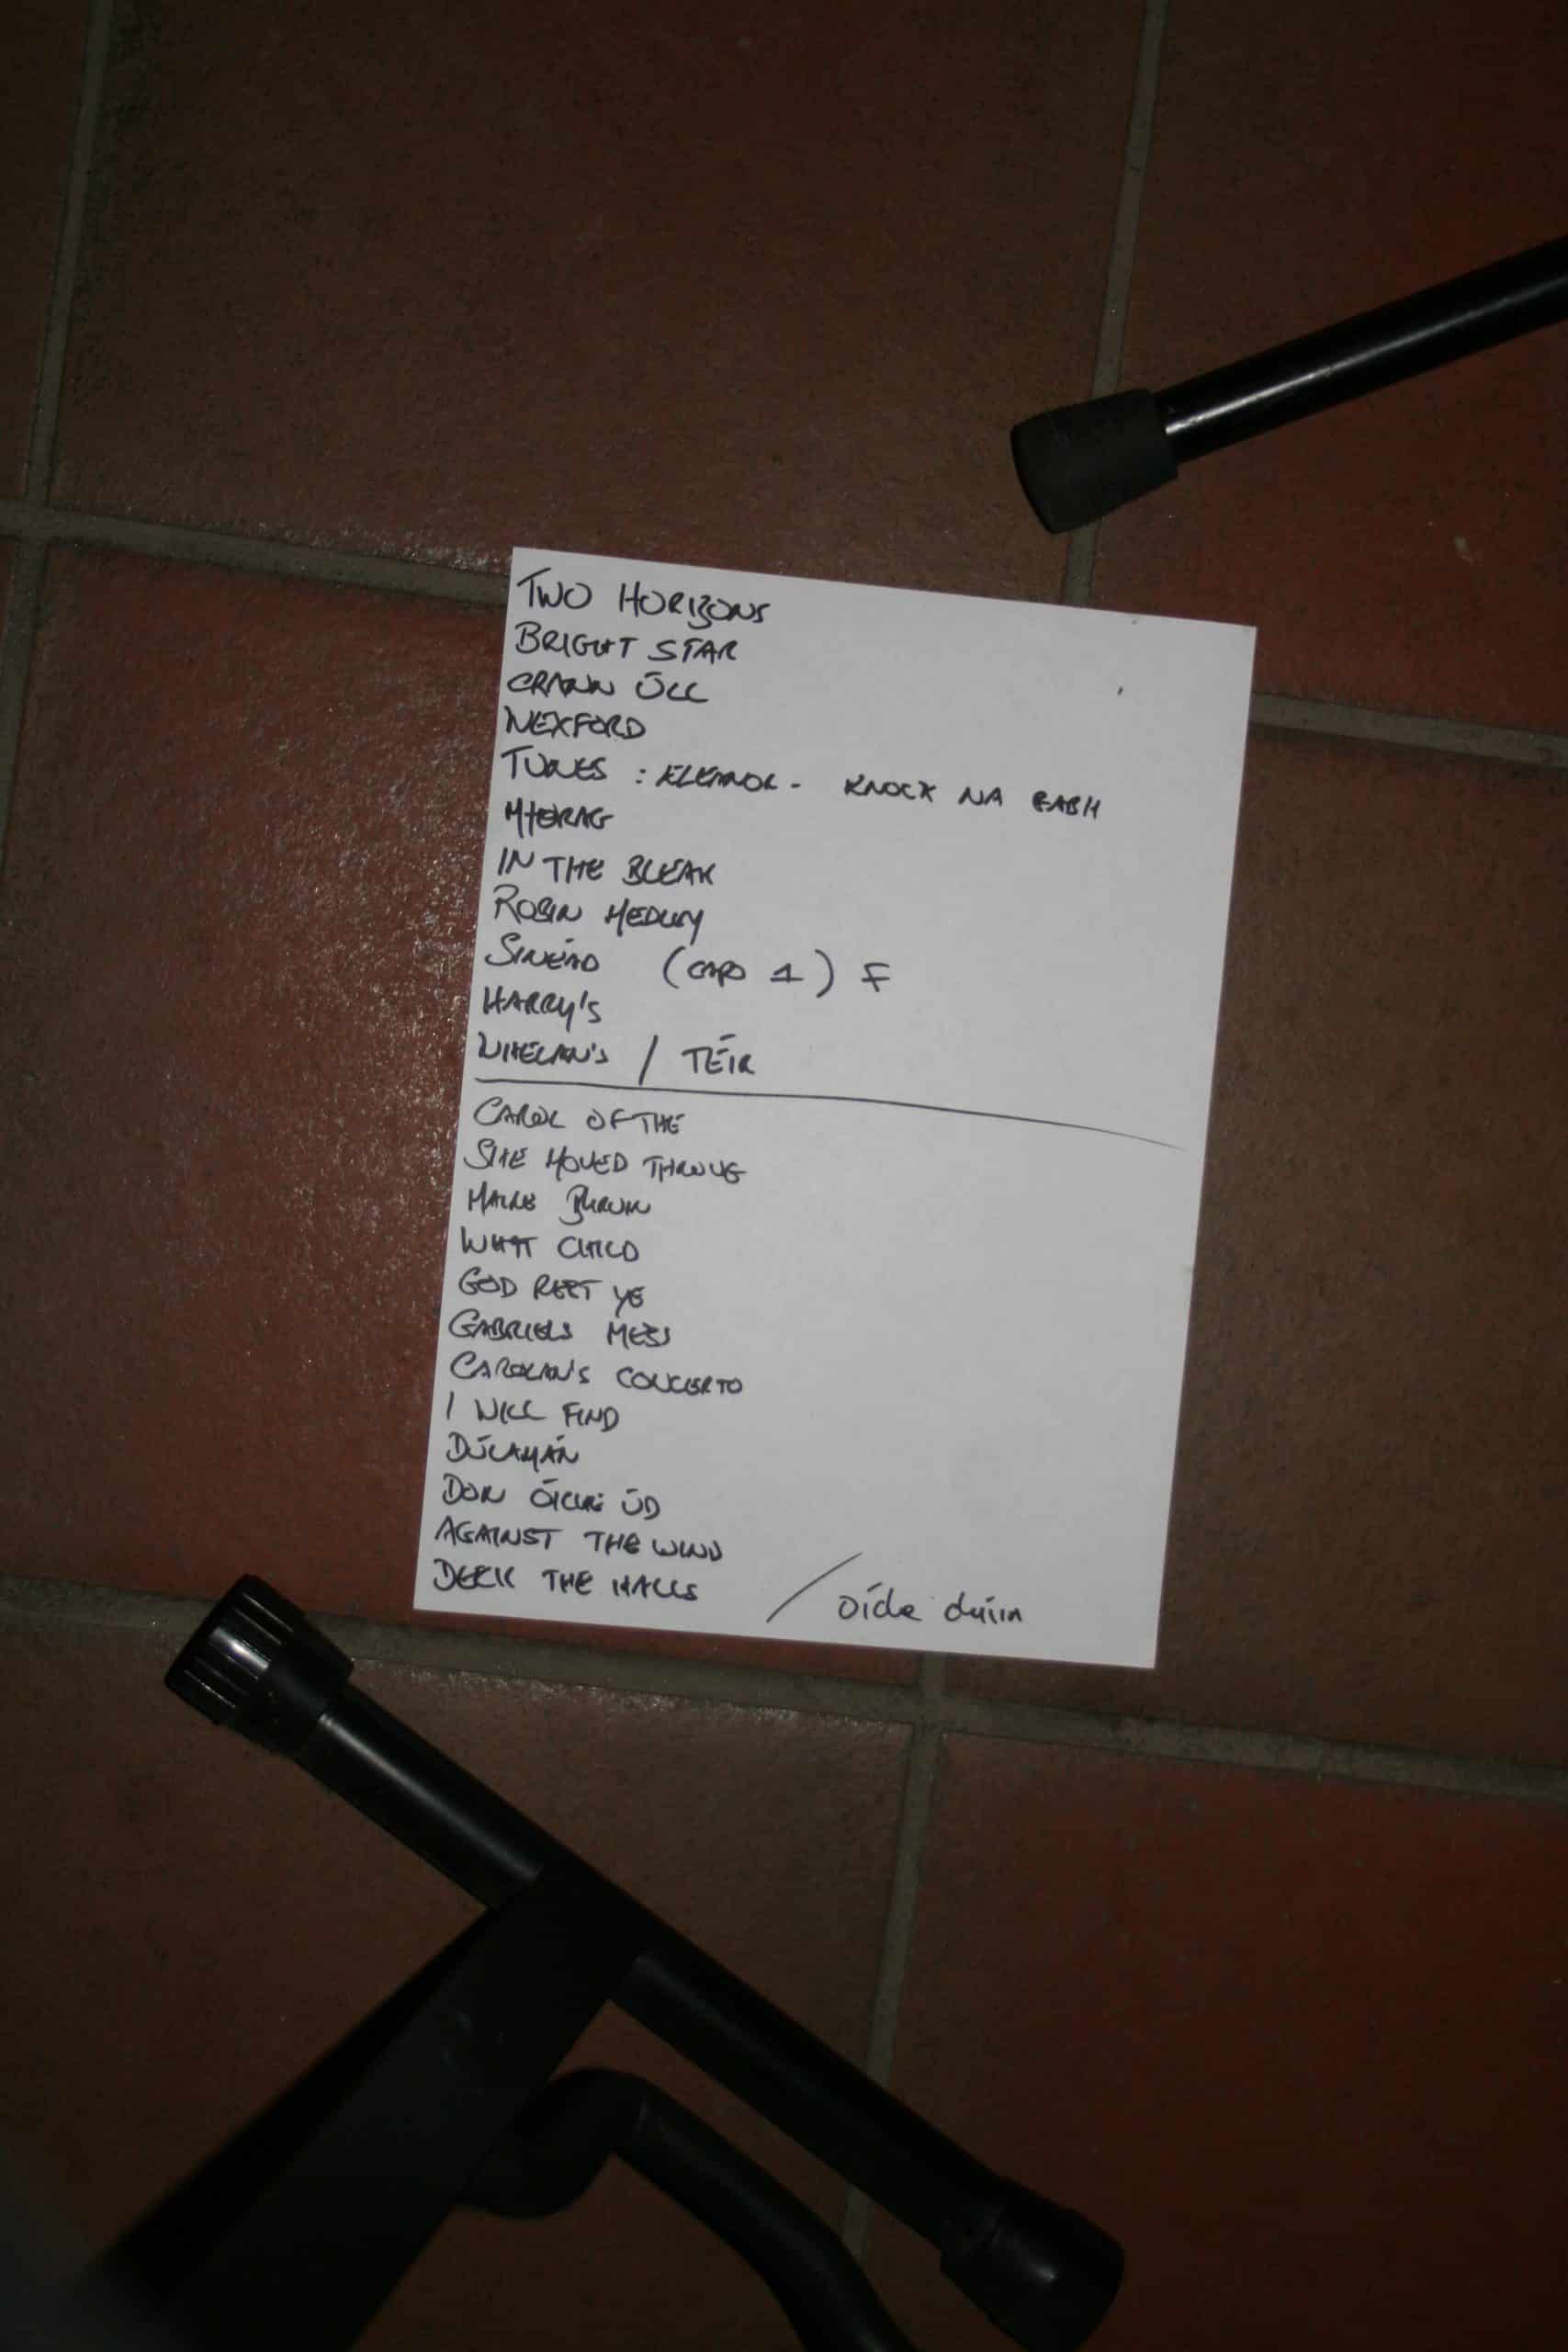 TWO HORIZONS
BRIGHT STAR
CRANN ÚLL
WEXFORD
TUNES : ELEANOR - KNOCK NA
MHORAG
IN THE BLEAK
ROBIN MEDLEY
SINÉAD (CAPO 1) F
HARRY'S
WHELAN'S / TÉIR
CAROL OF THE
SHE MOVED THROUG
WHAT CHILD
GOD REST YE
GABRIELS MESS
CAROLAN'S CONCERTO
I WILL FIND
DÚLAMÁN
DON OÍCHE ÚD
AGAINST THE WIND
DECK THE HALLS / oíche chiúin